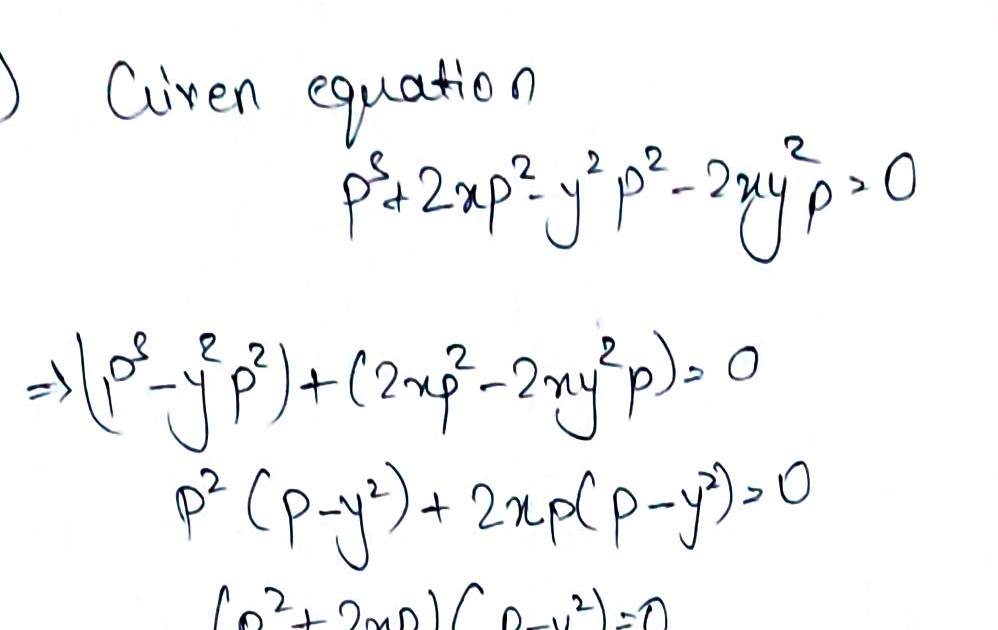 ) Given equation
p³+2xp²-y²p²-2xy²p=0
⇒(p³-y²p²)+(2xp²-2xy²p)=0
p²(p-y²)+2xp(p-y²)=0
(p²+2xp)(p-y²)=0